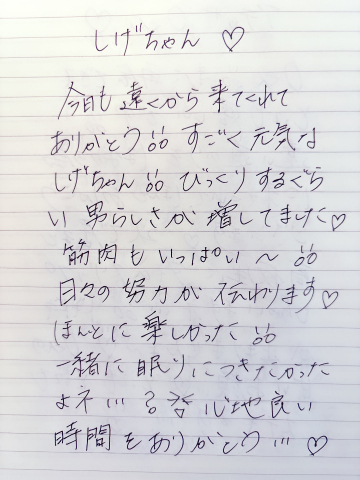 しげちゃん♡
今日も遠くから来てくれて
ありがとう!! すごく元気な
しげちゃん!! びっくりするぐら
い男らしさが増してました♡
筋肉もいっぱい〜!!
日々の努力が伝わります♡
ほんとに楽しかった!!
一緒に眠りにつきたかった
よネ…? 心地良い
時間をありがとう…♡